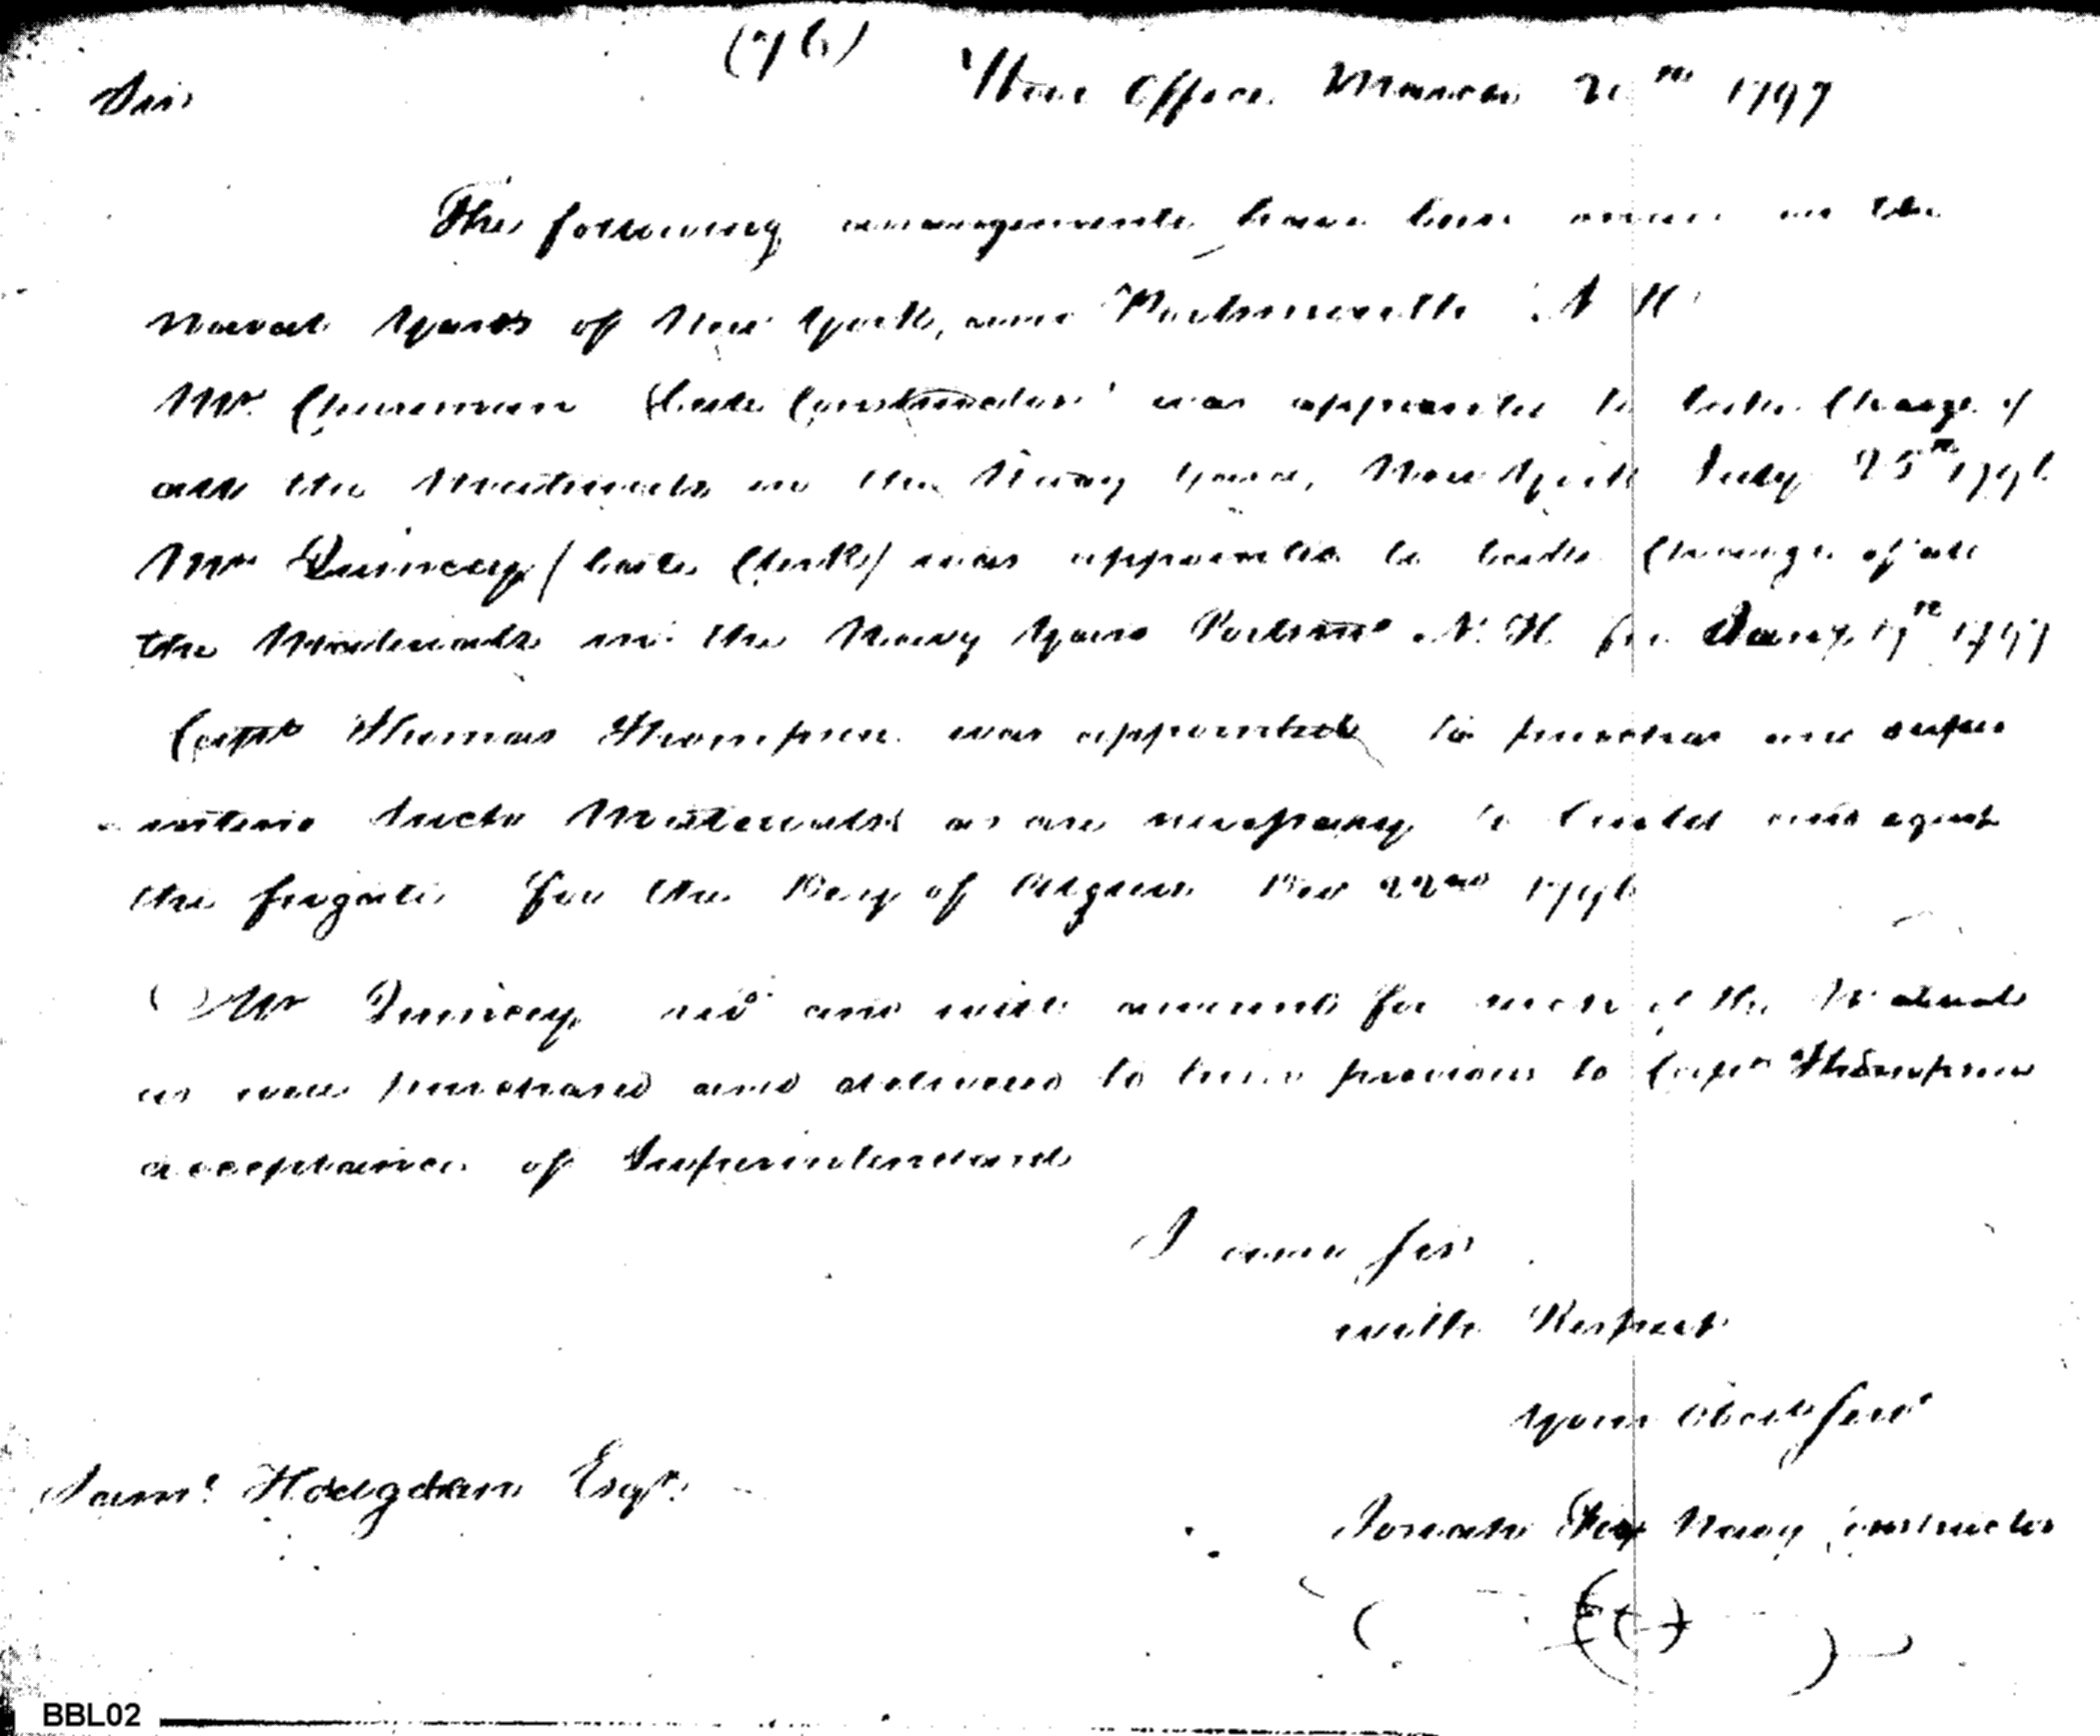 (76)
War Office March 20th 1797
Sir
The following arrangements have been made in the
Naval Yards of New York, and Portsmouth N H
Mr. Cheesman (late Constructor) was appointed to take Charge of
all the Materials in the Navy Yard, New York July 25th 1796
Mr Quincey (late Clerk) was appointed to take Charge of all
the Materials in the Navy Yard Portsmo N. H. Jany 19th 1797
Capt Thomas Thompson was appointed to purchase and super
intend such Materials as are necessary to build and equip
the frigate for the Dey of Algiers Dec 22nd 1796
Mr Quincey did and will account for such of the Materials
as were purchased and delivered to him previous to Capt Thompson
acceptance of Superintendant
I am Sir
with Respect
Your Obedt Servt
Saml Hodgdon Esqr.
Josiah Fox Navy Constructor
BBL02